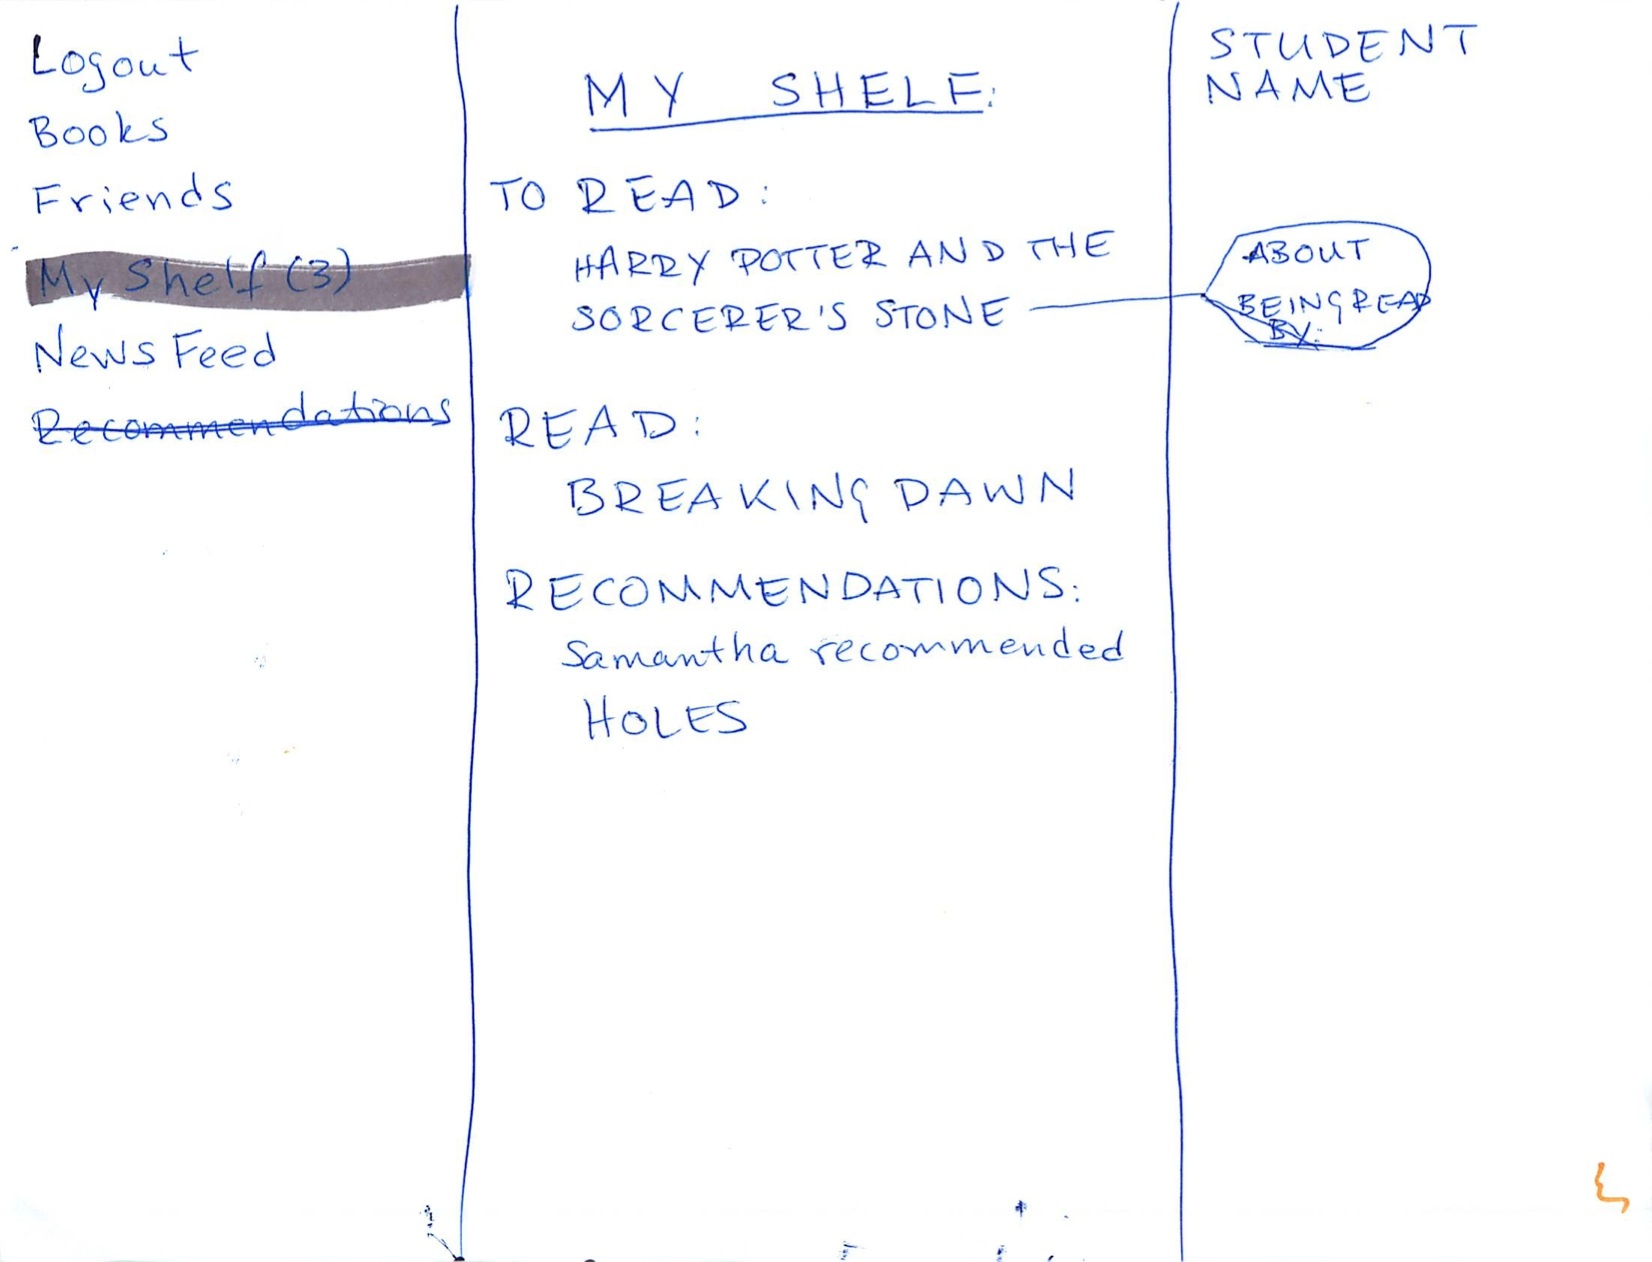 Logout
Books
Friends
My Shelf (3)
News Feed
Recommendations
MY SHELF:
TO READ:
HARRY POTTER AND THE
SORCERER'S STONE
READ:
BREAKING DAWN
RECOMMENDATIONS:
Samantha recommended
HOLES
STUDENT
NAME
ABOUT
BEING READ
BY: